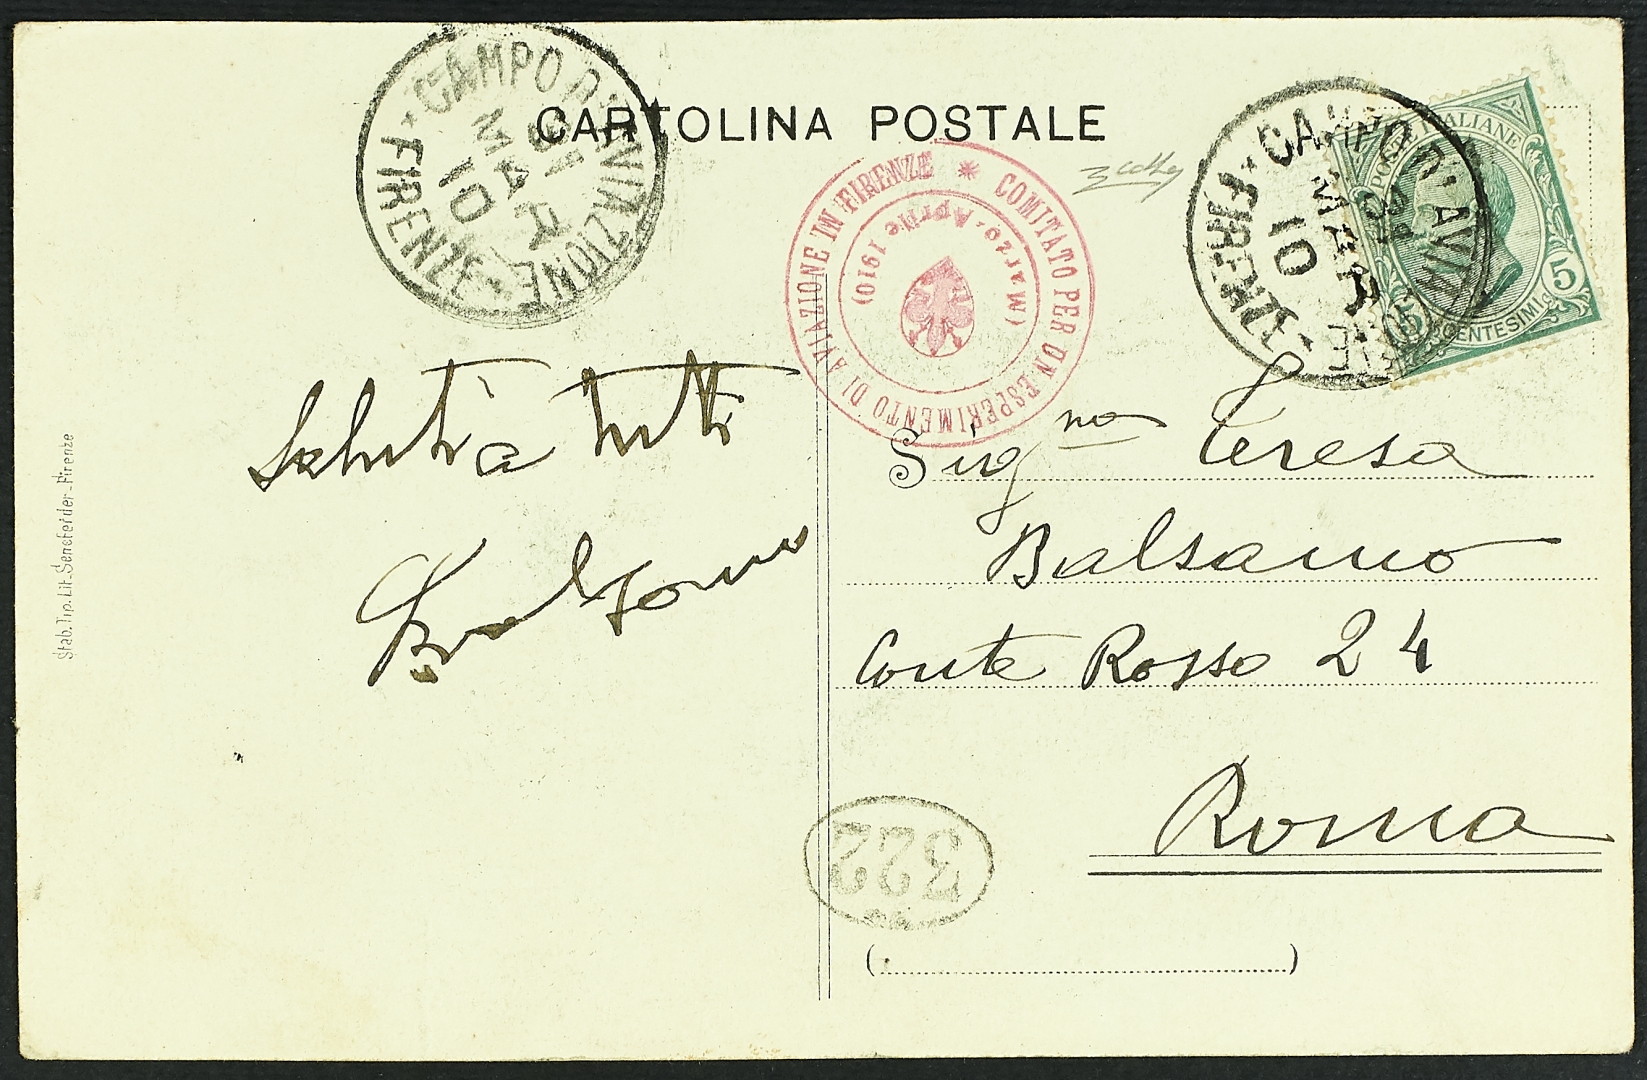 CARTOLINA POSTALE
* CAMPO D'AVIAZIONE *
FIRENZE
31
MAR
10
COMITATO PER UN ESPERIMENTO DI AVIAZIONE IN FIRENZE *
(Marzo-Aprile 1910)
* CAMPO D'AVIAZIONE *
FIRENZE
31
MAR
10
POSTE ITALIANE
CENTESIMI
5
5
Saluti a tutti
Balsamo
Sig.na Teresa
Balsamo
Conte Rosso 24
Roma
322
( )
Stab. Tip. Lit. Senefelder - Firenze